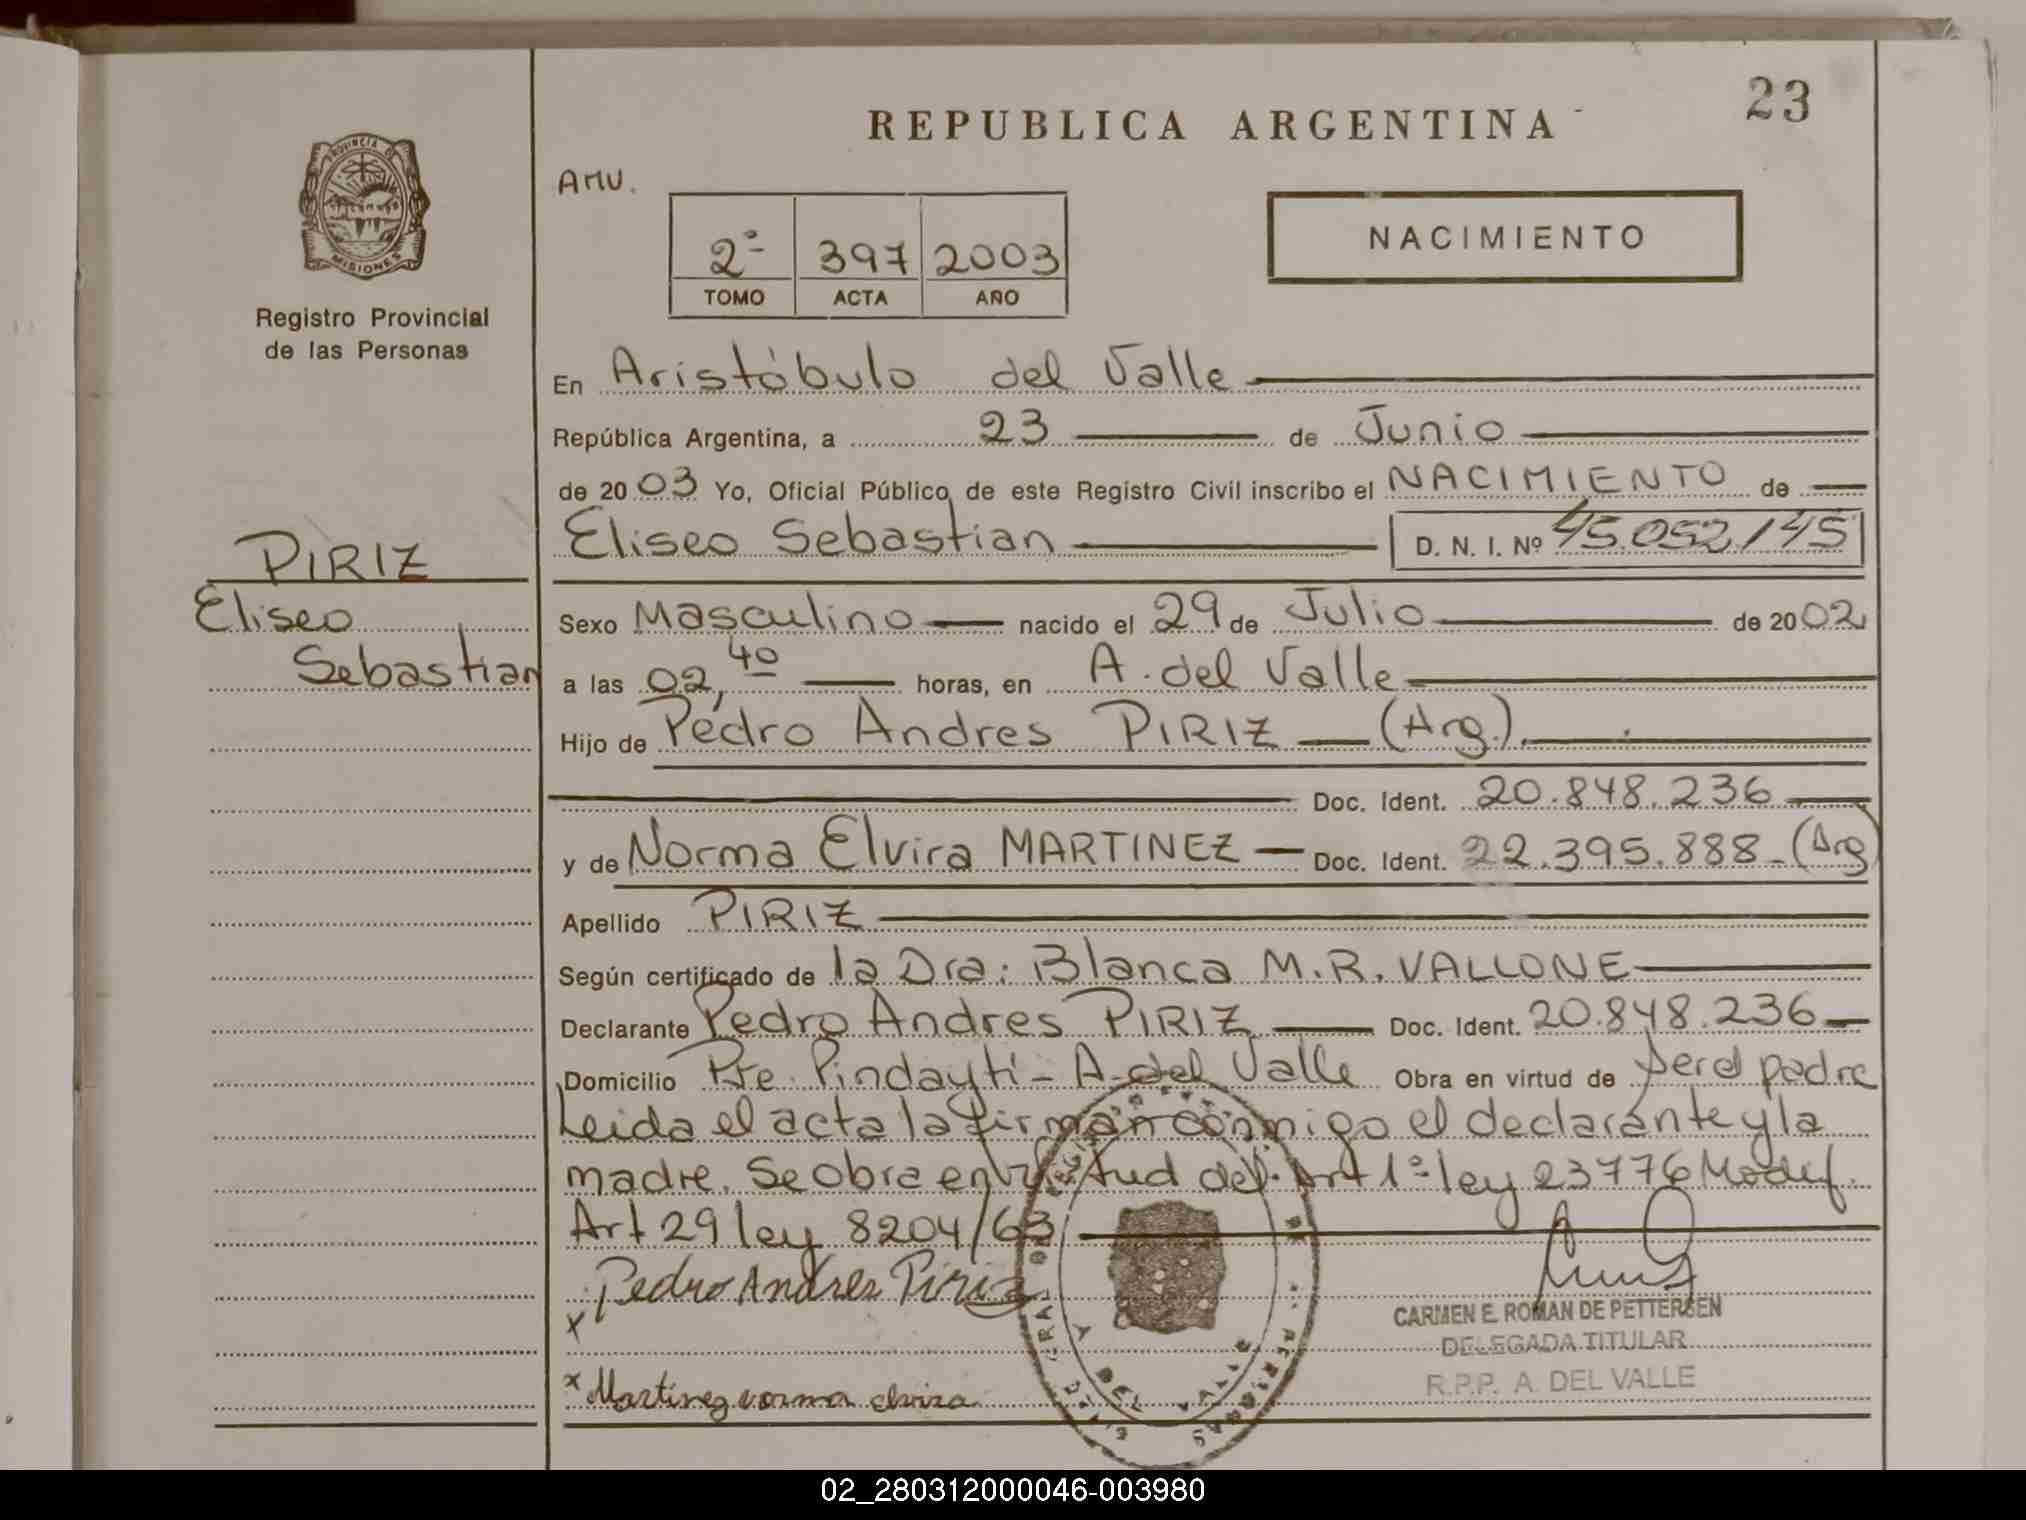 23
REPUBLICA ARGENTINA
PROVINCIA DE
MISIONES
Registro Provincial
de las Personas
AMV.
2º 397 2003
TOMO ACTA AÑO
NACIMIENTO
En Aristóbulo del Valle
República Argentina, a 23 de Junio
de 2003 Yo, Oficial Público de este Registro Civil inscribo el NACIMIENTO de
Eliseo Sebastian D. N. I. Nº 45.052.145
PIRIZ
Eliseo
Sebastian
Sexo Masculino nacido el 29 de Julio de 2002
a las 02,40 horas, en A. del Valle
Hijo de Pedro Andres PIRIZ (Arg.)
Doc. Ident. 20.848.236
y de Norma Elvira MARTINEZ Doc. Ident. 22.395.888 (Arg)
Apellido PIRIZ
Según certificado de la Dra: Blanca M.R. VALLONE
Declarante Pedro Andres PIRIZ Doc. Ident. 20.848.236
Domicilio Pje. Pindaytí - A. del Valle Obra en virtud de ser el padre
Leida el acta la firman conmigo el declarante y la
madre. Se obra en virtud del Art 1º ley 23776 Modif.
Art 29 ley 8204/63
Pedro Andres Piriz
x
CARMEN E. ROMAN DE PETTERSEN
DELEGADA TITULAR
R.P.P. A. DEL VALLE
x Martinez norma elvira
02_280312000046-003980